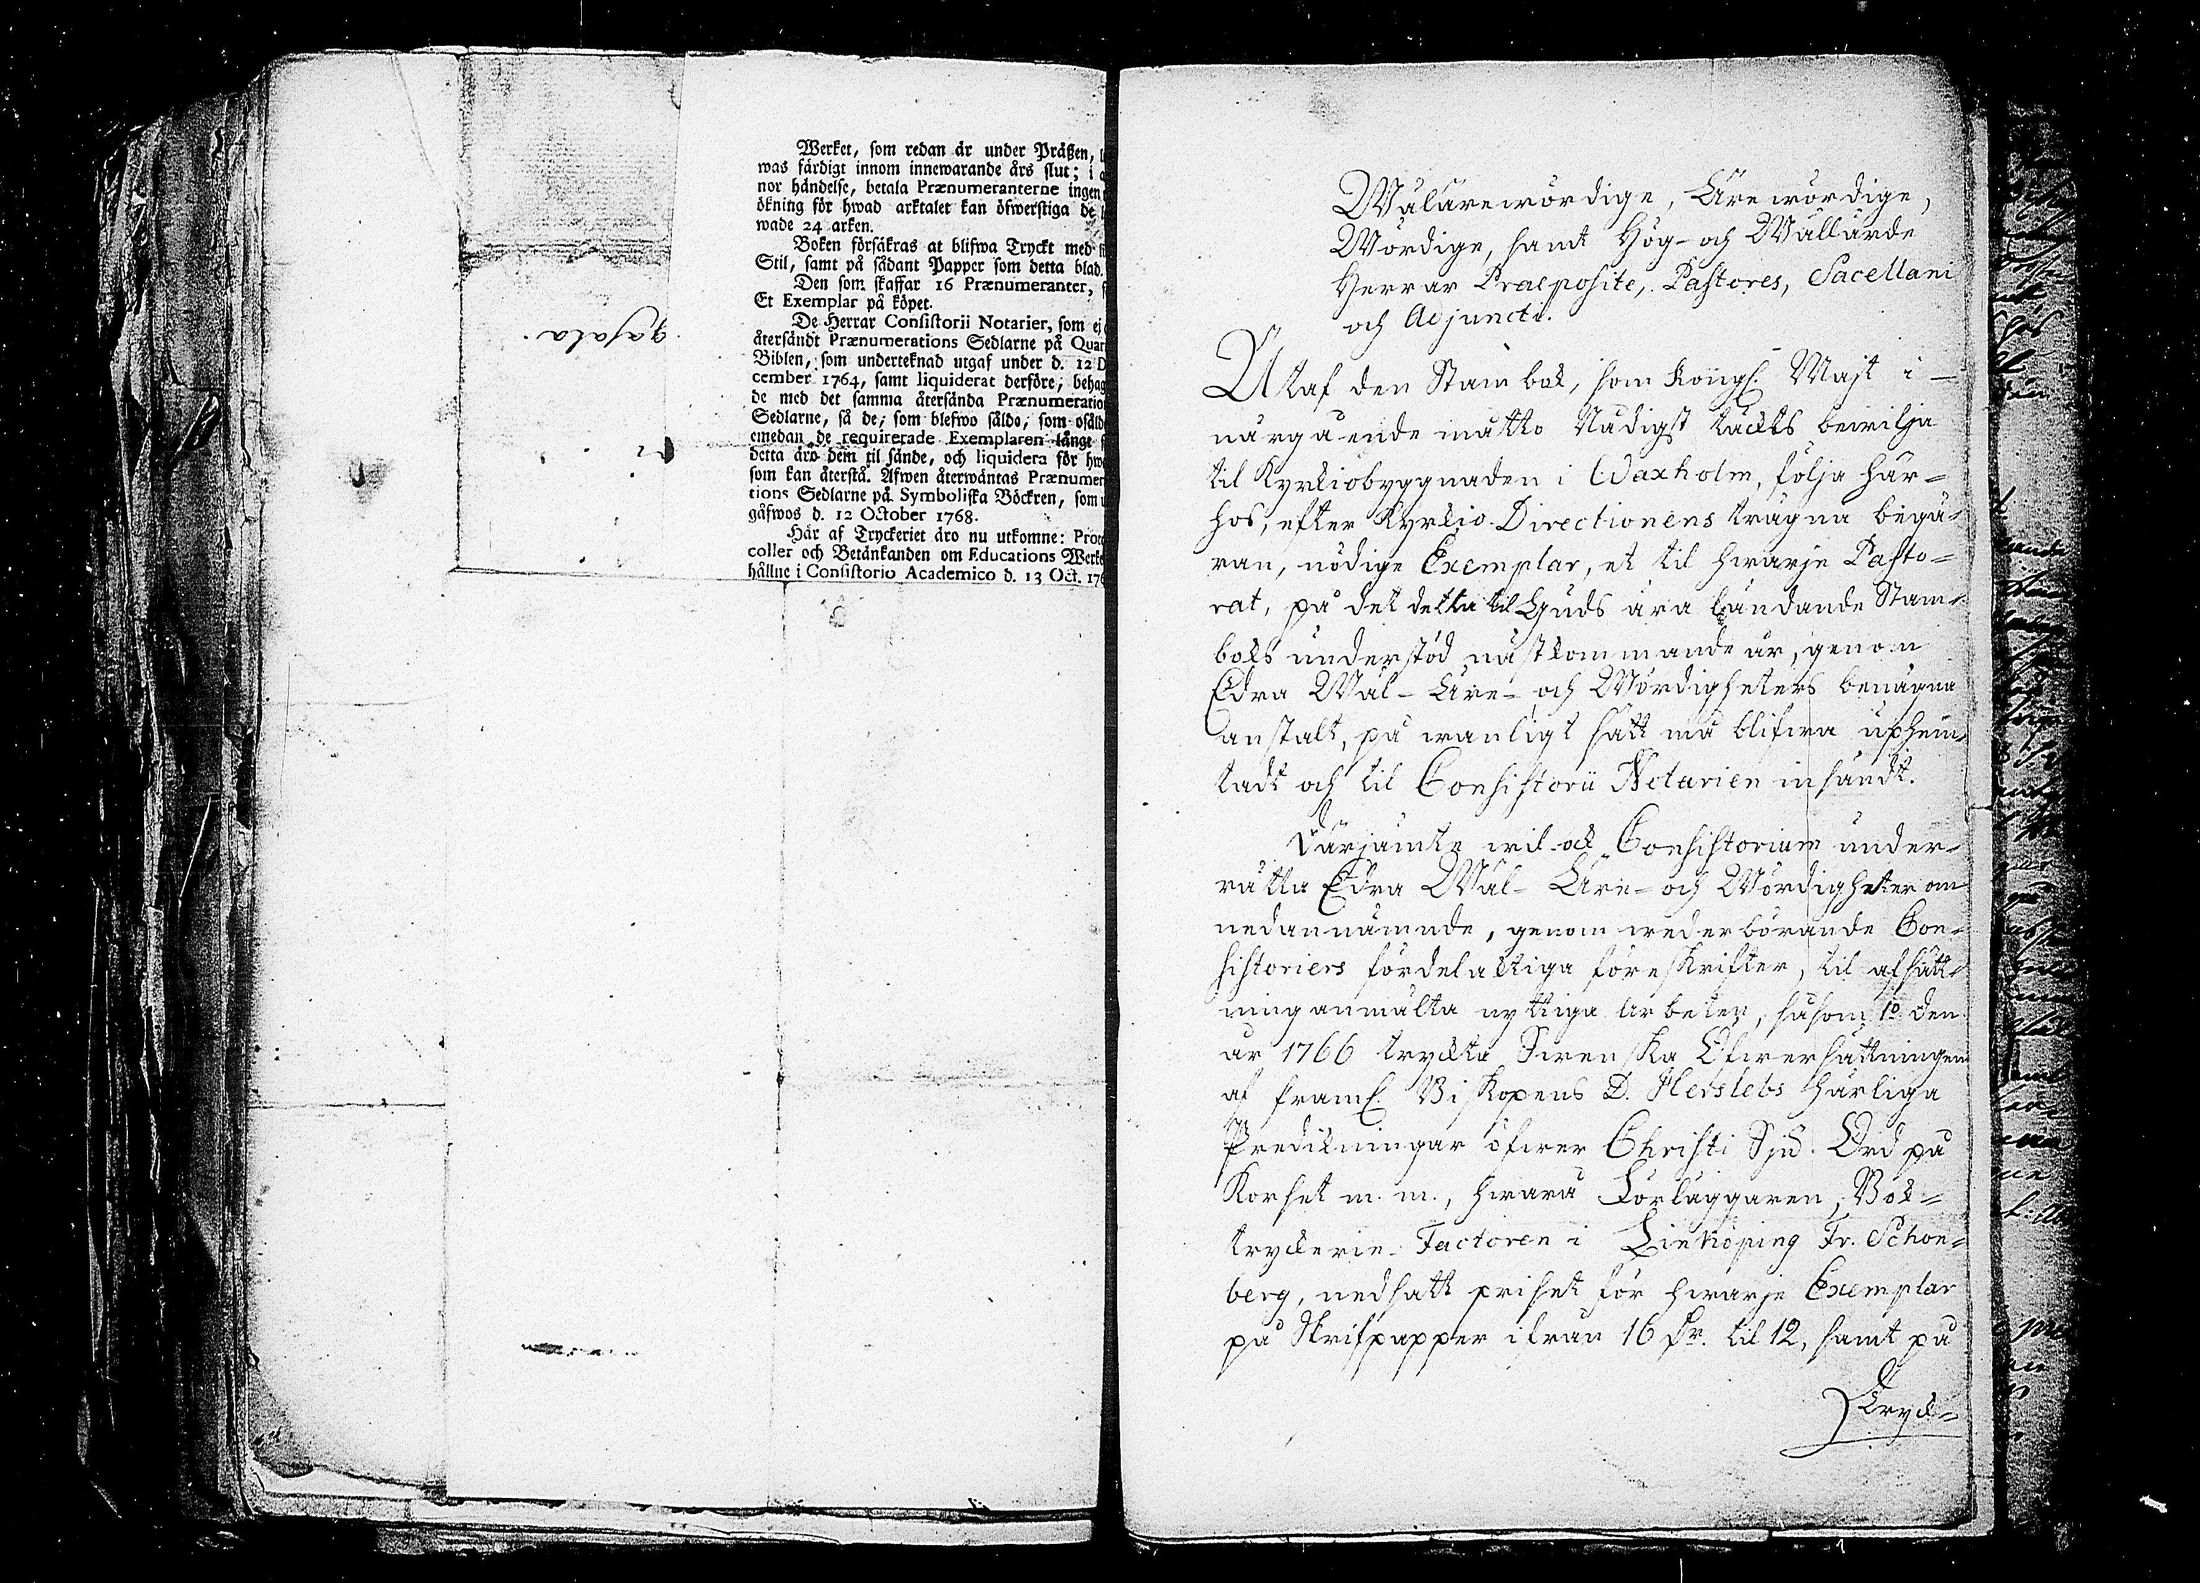 Werket, som redan är under Präßen,
was färdigt innom innewarande års slut; i
nor händelse, betala Prænumeranterne ingen
ökning för hwad arktalet kan öfwerstiga de
wade 24 arken.
Boken försäkras at blifwa Tryckt med
Stil, samt på sådant Papper som detta blad.
Den som skaffar 16 Prænumeranter,
Et Exemplar på köpet.
De Herrar Consistorii Notarier, som ej
återsändt Prænumerations Sedlarne på Quar
Biblen, som underteknad utgaf under d. 12 D
cember 1764, samt liquiderat derföre, behag
de med det samma återsända Prænumeratio
Sedlarne, så de, som blefwo sålde, som osåld
emedan de requirerade Exemplaren längt
detta äro dem til sände, och liquidera för hw
som kan återstå. Äfwen återwäntas Prænumer
tions Sedlarne på Symboliska Böckren, som
gåfwos d. 12 October 1768.
Här af Tryckeriet äro nu utkomne: Proto
coller och Betänkanden om Educations Werke
hållne i Consistorio Academico d. 13 Oct. 176
Wälärewördige, Ärewördige,
Wördige, samt Hög- och Wällärde
Herrar Praeposite, Pastores, Sacellani
och Adjuncti.
Utaf den Stambok, som Kongl. Majt i-
närgående måtto Nådigst täckts bewilja
til Kyrkiobyggnaden i Waxholm, följa här-
hos, efter Kyrkio Directionens trägna begä-
ran, nödige Exemplar, et til hwarje Pasto-
rat, på det detta til Guds ära ländande Stam-
boks understöd nästkommande år, genom
Edra Wäl- Äre- och Wördigheters benägna
anstalt, på wanligt sätt må blifwa uphem-
tadt och til Consistorii Notarien insändt.
Därjämte wil ock Consistorium under-
rätta Edra Wäl- Äre- och Wördigheter om
nedannämnde, genom wederbörande Con-
sistoriers fördelaktiga föreskrifter, til afsätt-
ning anmälta nyttiga Arbeten, såsom 1o den
år 1766 tryckta Swenska Öfwersättningen
af framl. Biskopens D. Herslebs härliga
Predikningar öfwer Christi Sju Ord på
Korset m. m., hwarå Förläggaren, Bok-
tryckerie Factoren i Linköping Fr. Schon-
berg, nedsatt priset för hwarje Exemplar
på Skrifpapper ifrån 16 dr. til 12, samt på
Tryck-